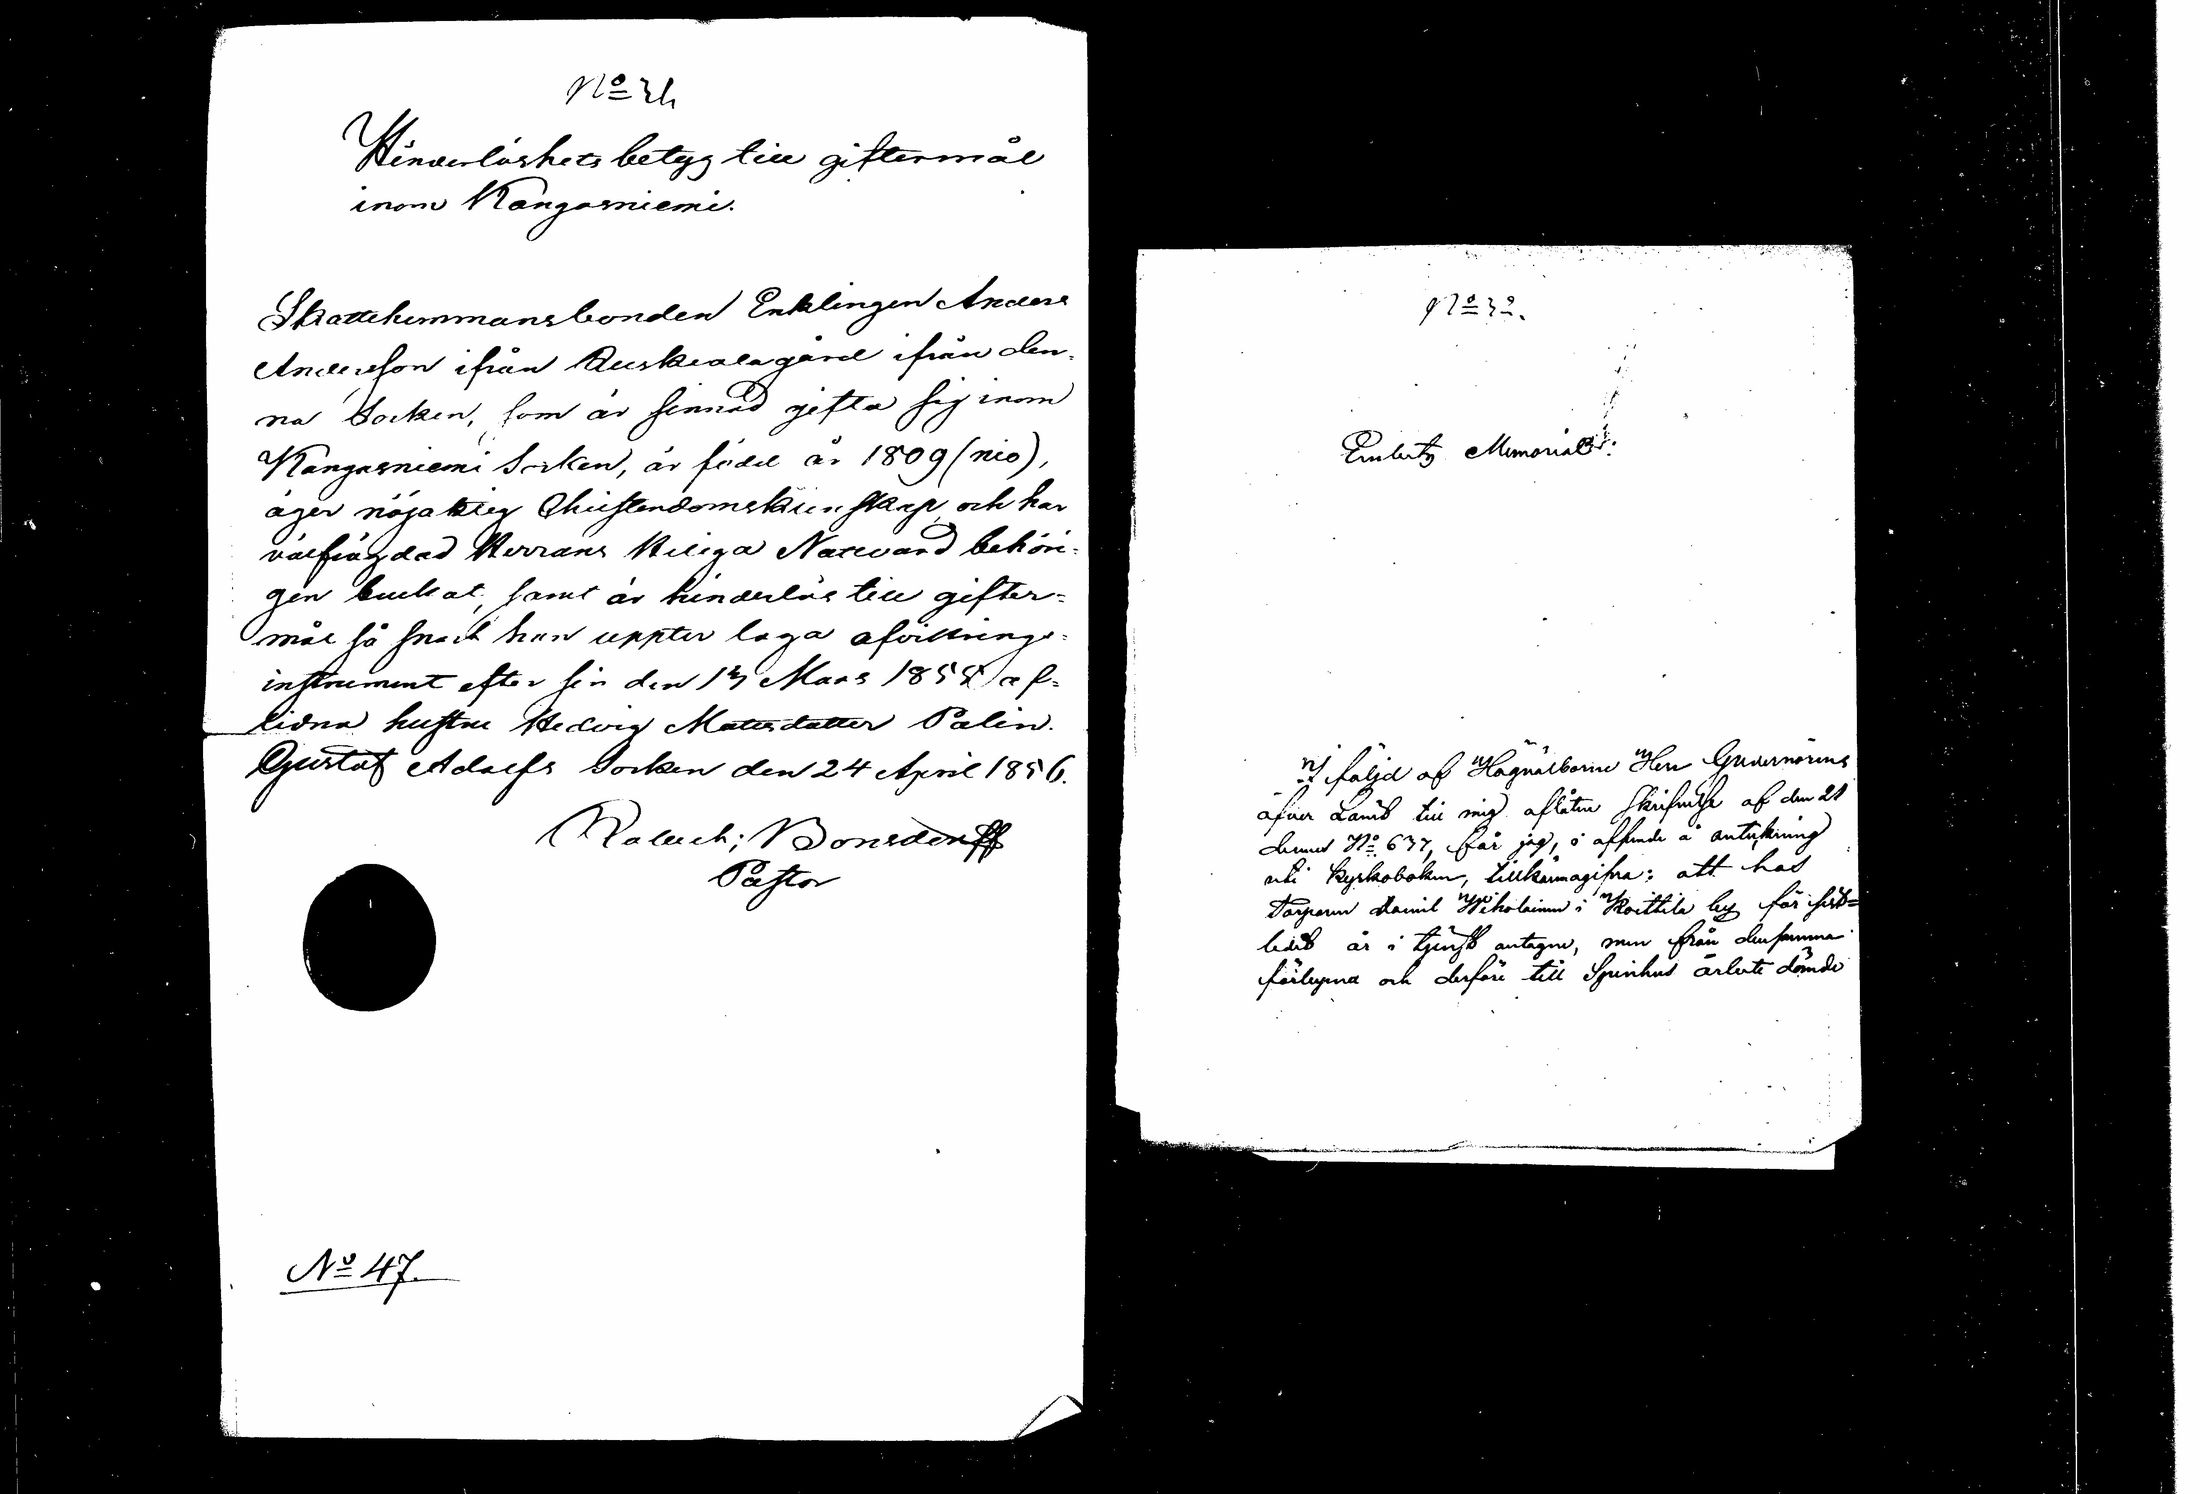 No 31
Hinderlöshets betyg till giftermål
inom Kangasniemi.
Skattehemmansbonden Enklingen Anders
Andersson ifrån Ruskealagård ifrån den-
na Socken, som är sinnad gifta sig inom
Kangasniemi Socken, är född år 1809 (nio),
äger nöjaktig Christendomskunskap och har
välfrägdad Herrans Heliga Nattvard behöri-
gen bruckat, samt är hinderlös till gifter-
mål så snart han uppter laga afvittrings-
instrument efter sin den 13 Mars 1855 af-
lidna hustru Hedvig Mattsdotter Palin.
Gustaf Adolfs Socken den 24 April 1856.
Bonsdorff
Pastor
No 47.
No 32.
Embets Memorial.
I följd af Högvälborne Herr Guvernörens
öfver Länet till mig aflåtna skrifvelse af den 21
dennes No 637, får jag, i afseende å anteckning
uti kyrkoboken, tillkännagifva: att hos
Torparen Daniel Wiholainen i Koittila by för sist-
ledit år i tjenst antagne, men från densamma
förlupna och derföre till Spinhus arbete dömde